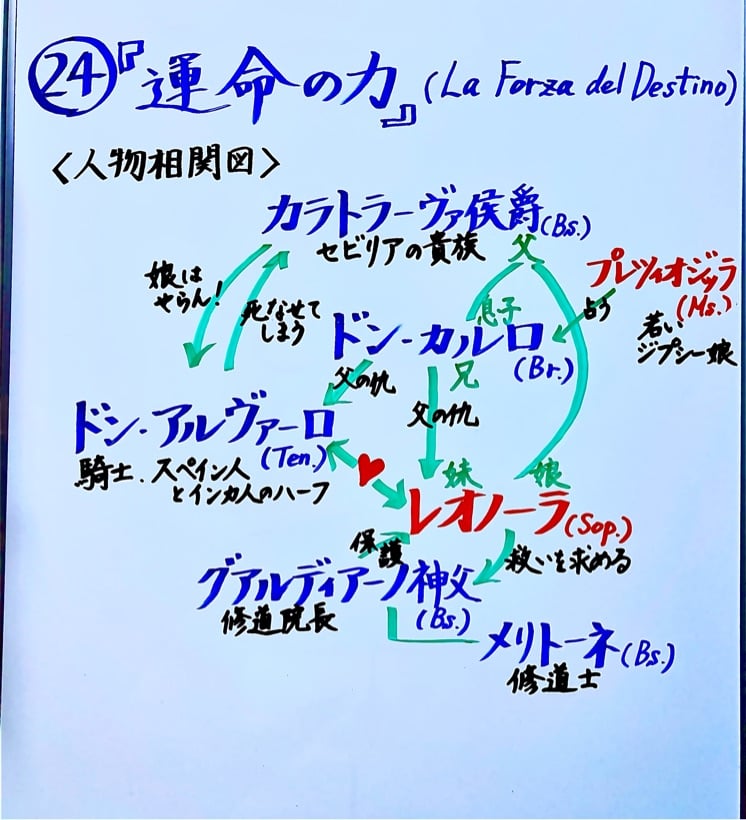 24『運命の力』(La Forza del Destino)
〈人物相関図〉
カラトラーヴァ侯爵(Bs.)
セビリアの貴族
父
プレツィオジッラ
(Ms.)
占う
若い
ジプシー娘
娘は
やらん!
死なせて
しまう
息子
ドン・カルロ
(Br.)
兄
父の仇
父の仇
ドン・アルヴァーロ
(Ten.)
騎士、スペイン人
とインカ人のハーフ
妹
娘
レオノーラ(Sop.)
保護
救いを求める
グアルディアーノ神父
(Bs.)
修道院長
メリトーネ(Bs.)
修道士